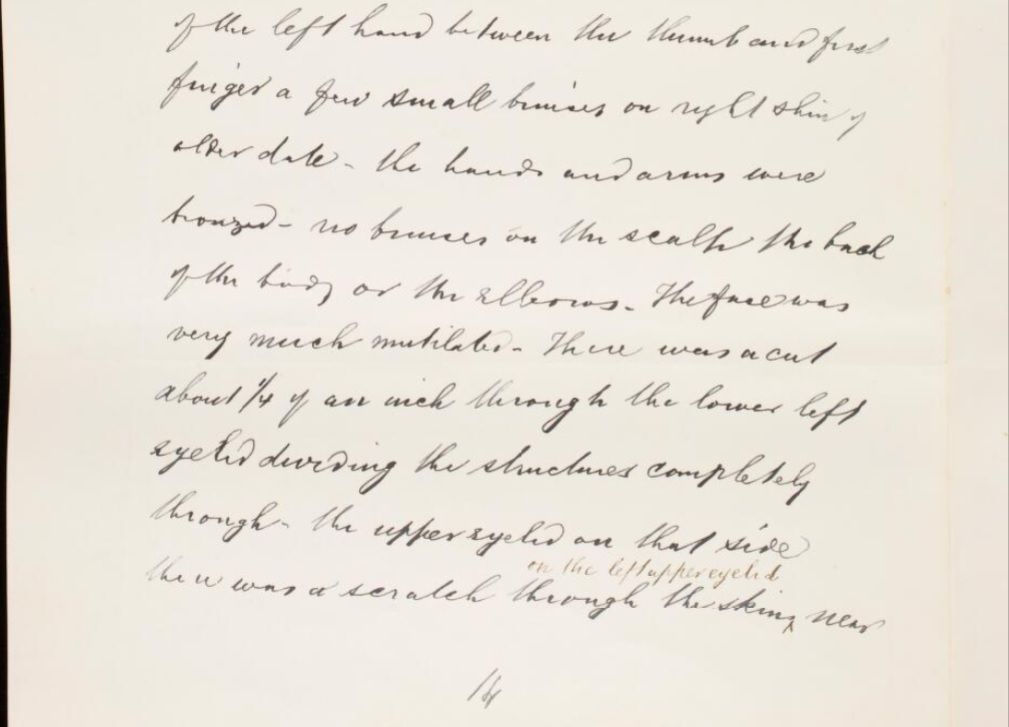 of the left hand between the thumb and first
finger a few small bruises on right shin of
older date - the hands and arms were
bronzed - no bruises on the scalp the back
of the body or the elbows - The face was
very much mutilated - There was a cut
about 1/4 of an inch through the lower left
eyelid dividing the structures completely
through - the upper eyelid on that side
on the left upper eyelid
there was a scratch through the skin near
14